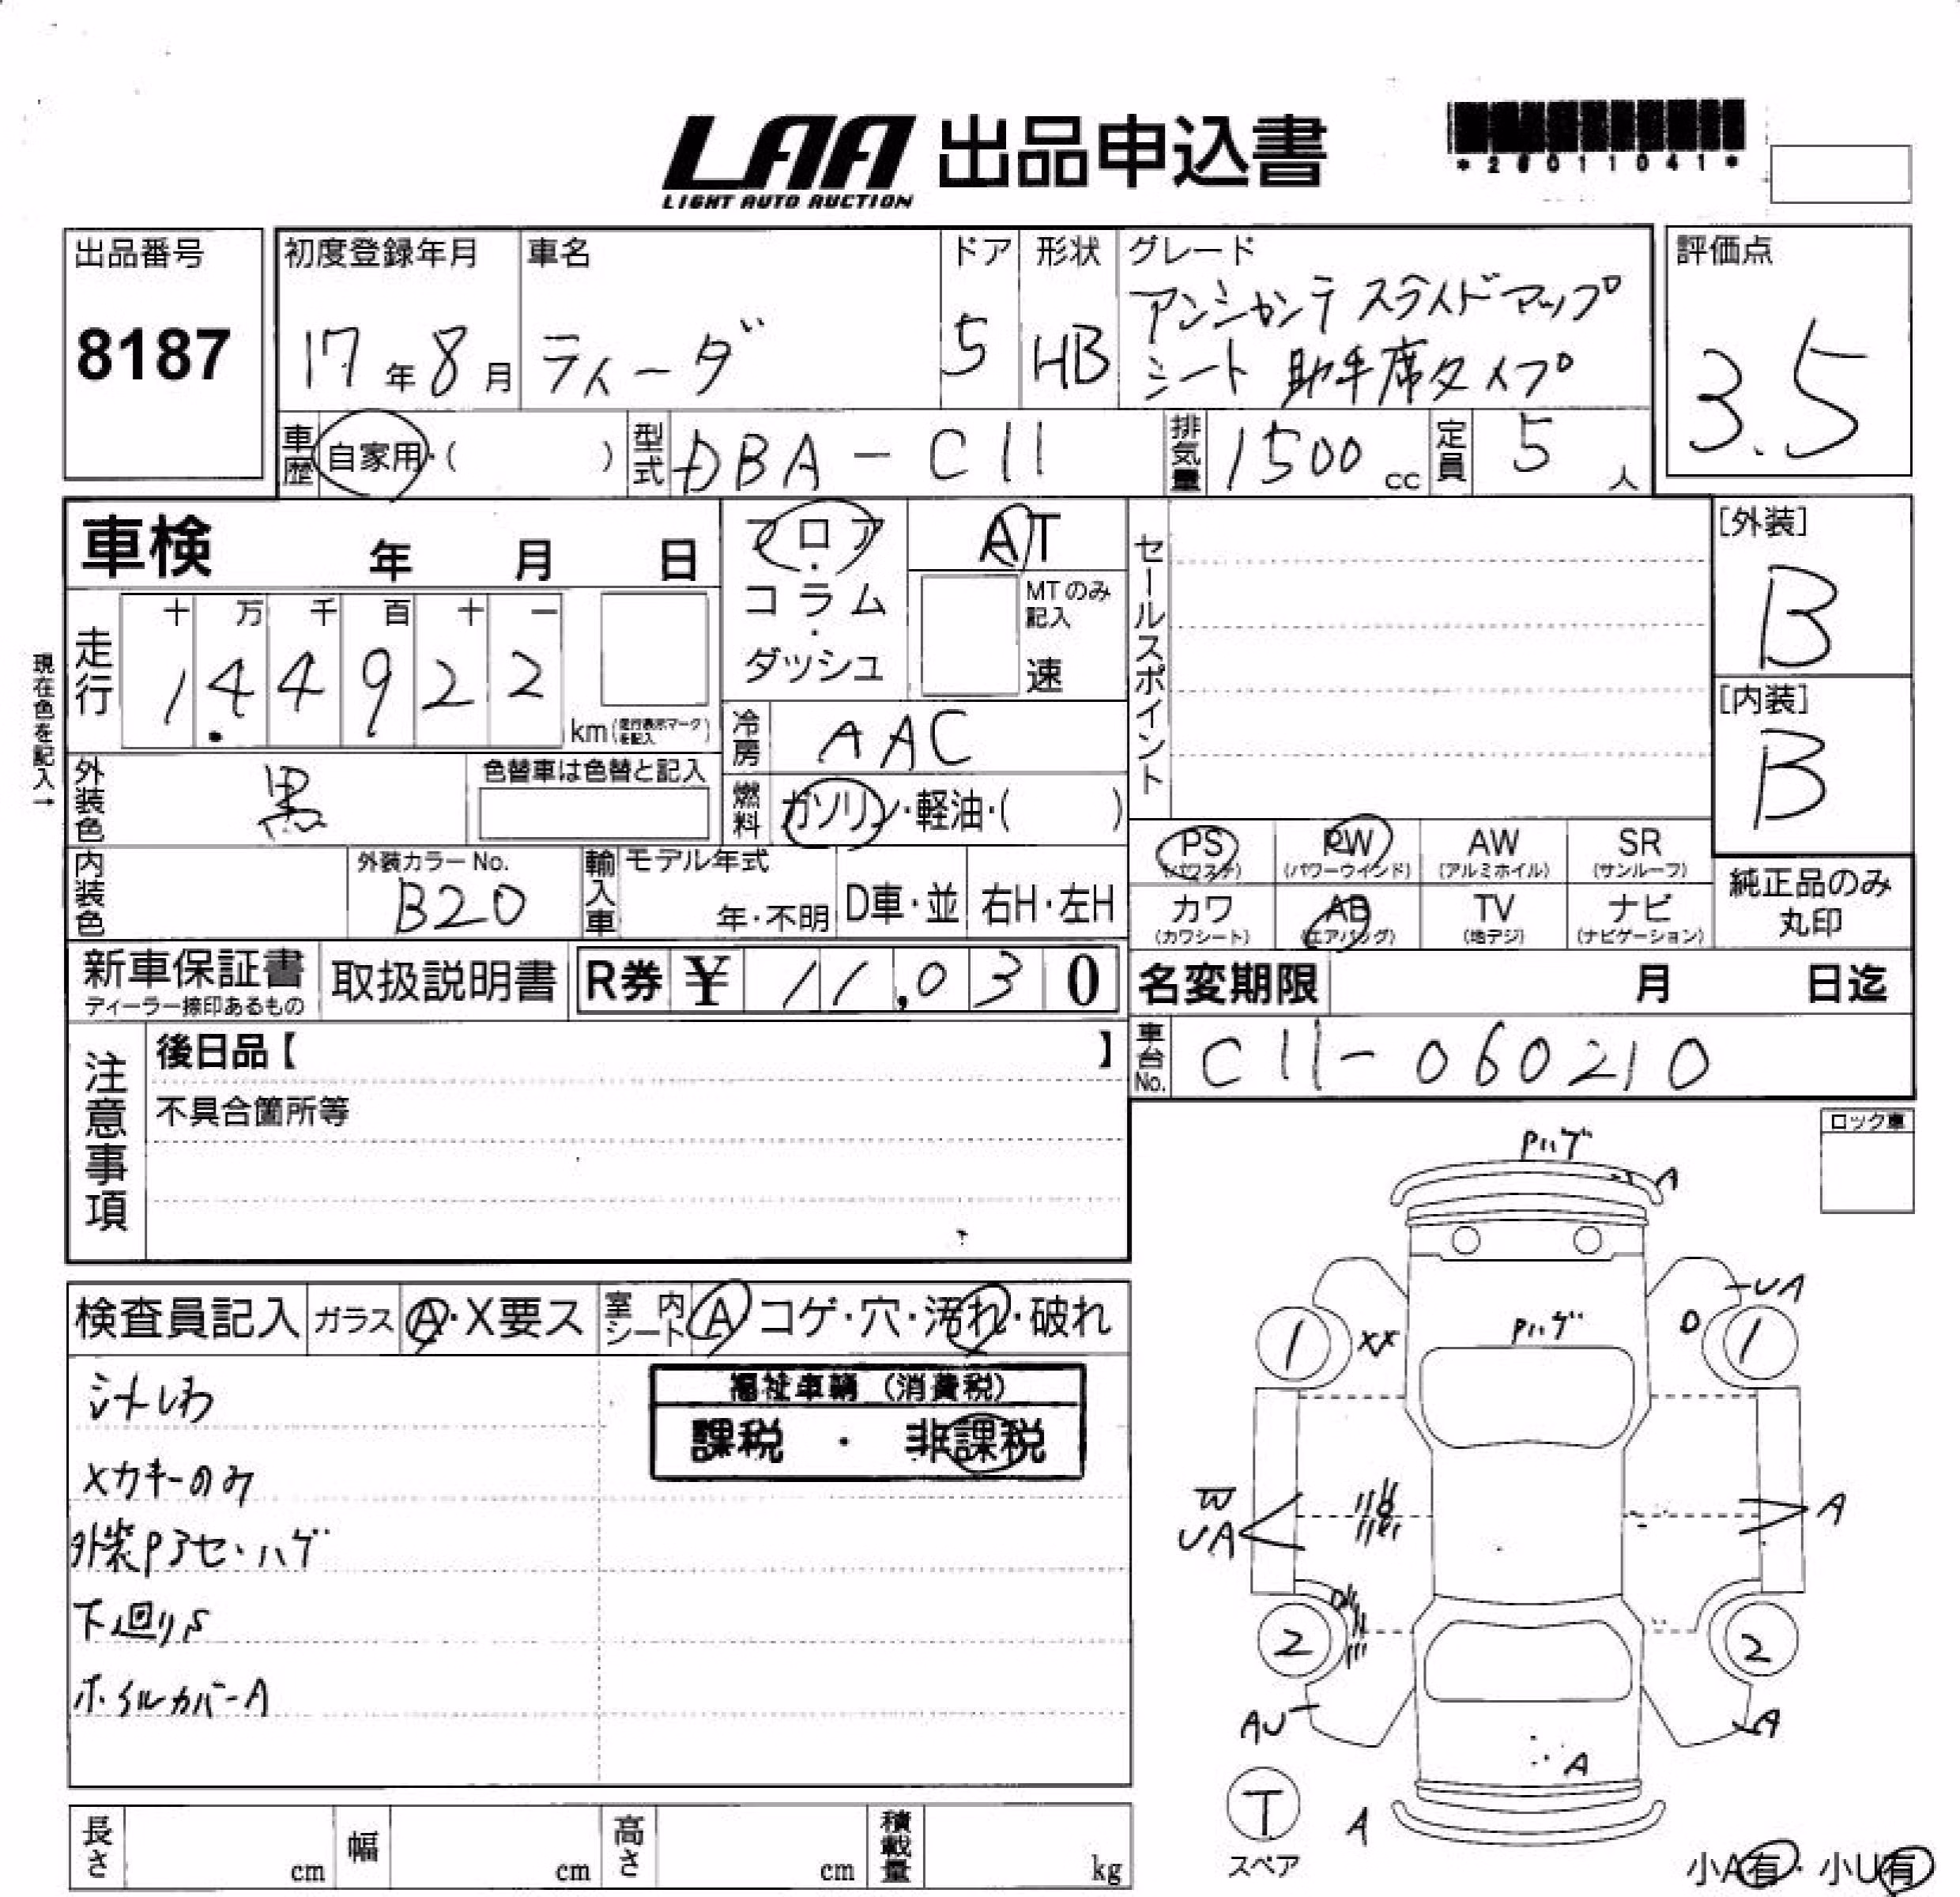 LAA 出品申込書
LIGHT AUTO AUCTION
*28011041*
出品番号
8187
初度登録年月
17年8月
車名
ティーダ
ドア
5
形状
HB
グレード
アンシャンテ スライドマップ
シート 助手席タイプ
評価点
3.5
車歴 自家用・( )
型式 DBA-C11
排気量 1500 cc
定員 5 人
車検 年 月 日
フロア・コラム・ダッシュ
AT
MTのみ記入
速
セールスポイント
[外装]
B
[内装]
B
現在色を記入→
走行
十 万 千 百 十 一
1 4. 4 9 2 2
km(走行表示マークを記入)
冷房 AAC
外装色 黒
色替車は色替と記入
燃料 ガソリン・軽油・( )
PS (パワステ)
PW (パワーウインド)
AW (アルミホイル)
SR (サンルーフ)
カワ (カワシート)
AB (エアバッグ)
TV (地デジ)
ナビ (ナビゲーション)
純正品のみ
丸印
内装色
外装カラーNo.
B20
輸入車
モデル年式
年・不明
D車・並
右H・左H
新車保証書
ディーラー捺印あるもの
取扱説明書
R券 ¥ 11,030
名変期限 月 日迄
車台No. C11-060210
注意事項
後日品【 】
不具合箇所等
ロック車
検査員記入
ガラス A・X要ス
室内シート A コゲ・穴・汚れ・破れ
シートしわ
メカキーのみ
外装Pアセ・ハゲ
下廻りS
ホイルカバーA
福祉車輌 (消費税)
課税 ・ 非課税
Pハゲ
A
UA
1
XX
Pハゲ
1
W
UA
A
2
2
AU
A
A
T
A
スペア
小A有・小U有
長さ cm
幅 cm
高さ cm
積載量 kg